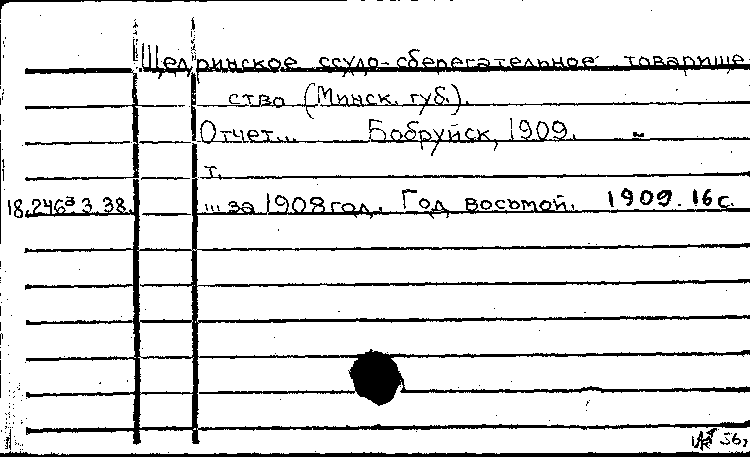 Щедринское ссудо-сберегательное товарище
ство (Минск. губ.).
Отчет... Бобруйск, 1909.
т.
18.246а 3.38. ... за 1908 год. Год восьмой. 1909. 16 с.
56